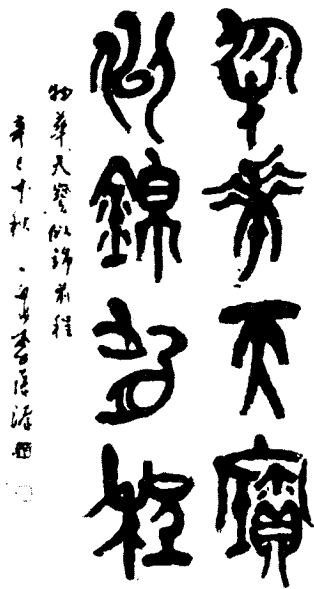 物華天寶
似錦前程
物華天寶似錦前程
辛巳秋